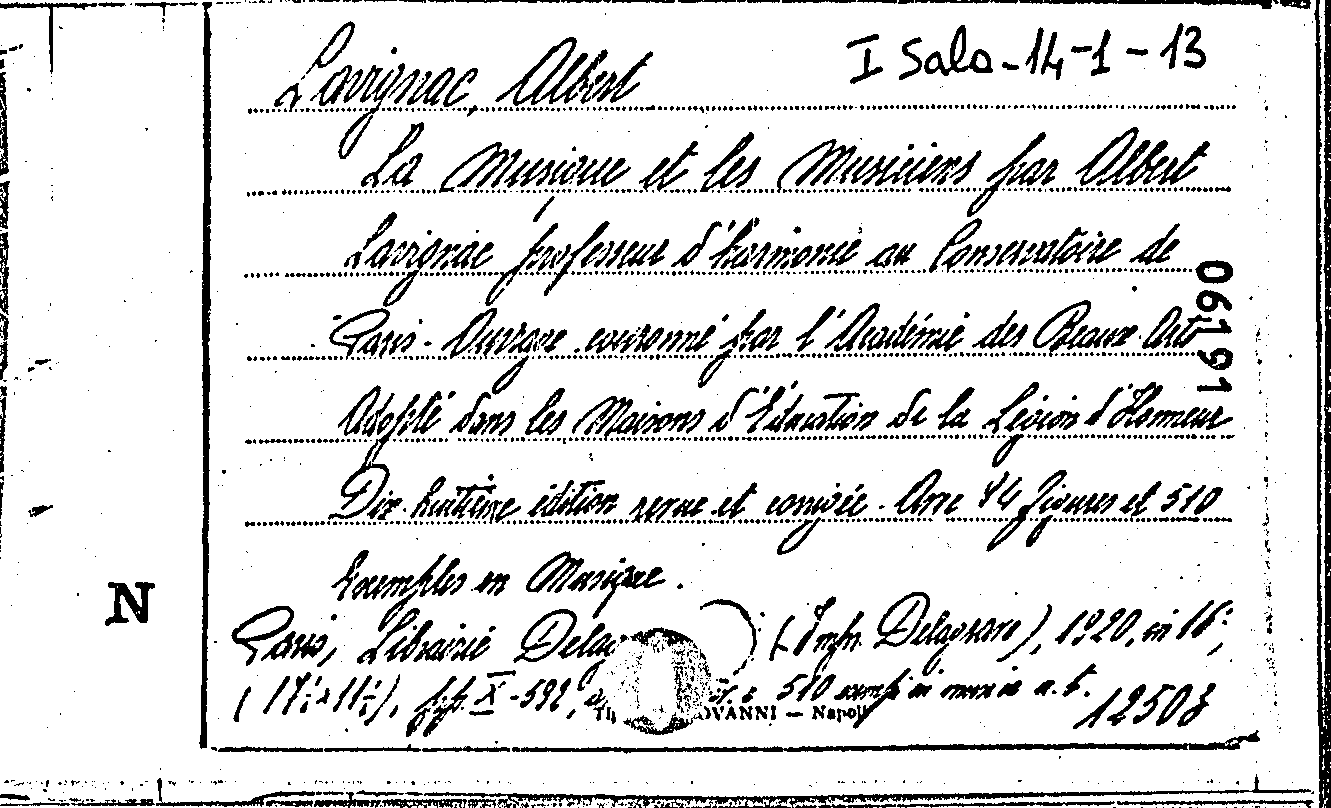 Lavignac, Albert
I Sala-14-1-13
La Musique et les Musiciens par Albert
Lavignac professeur d'harmonie au Conservatoire de
Paris. Ouvrage couronné par l'Académie des Beaux Arts
Adopté dans les Maisons d'Éducation de la Légion d'Honneur
Dix huitième édition revue et corrigée. Avec 94 figures et 510
Exemples en Musique.
Paris, Librairie (Impr. Delagrave), 1920, in 16°,
pp. X-592, 510 in a. t.
12508
OVANNI — Napoli
06191
N